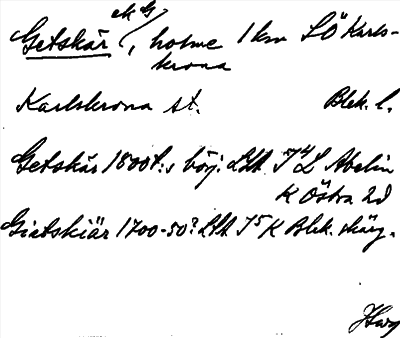 ek G
Getskär/, holme 1 km SÖ Karls-
krona
Karlskrona st. Blek. l.
Getskär 1800t:s börj. LM. J4L Abelin
K Östra 2d
Gietskiär 1700-50? LM J5K Blek. skärg.